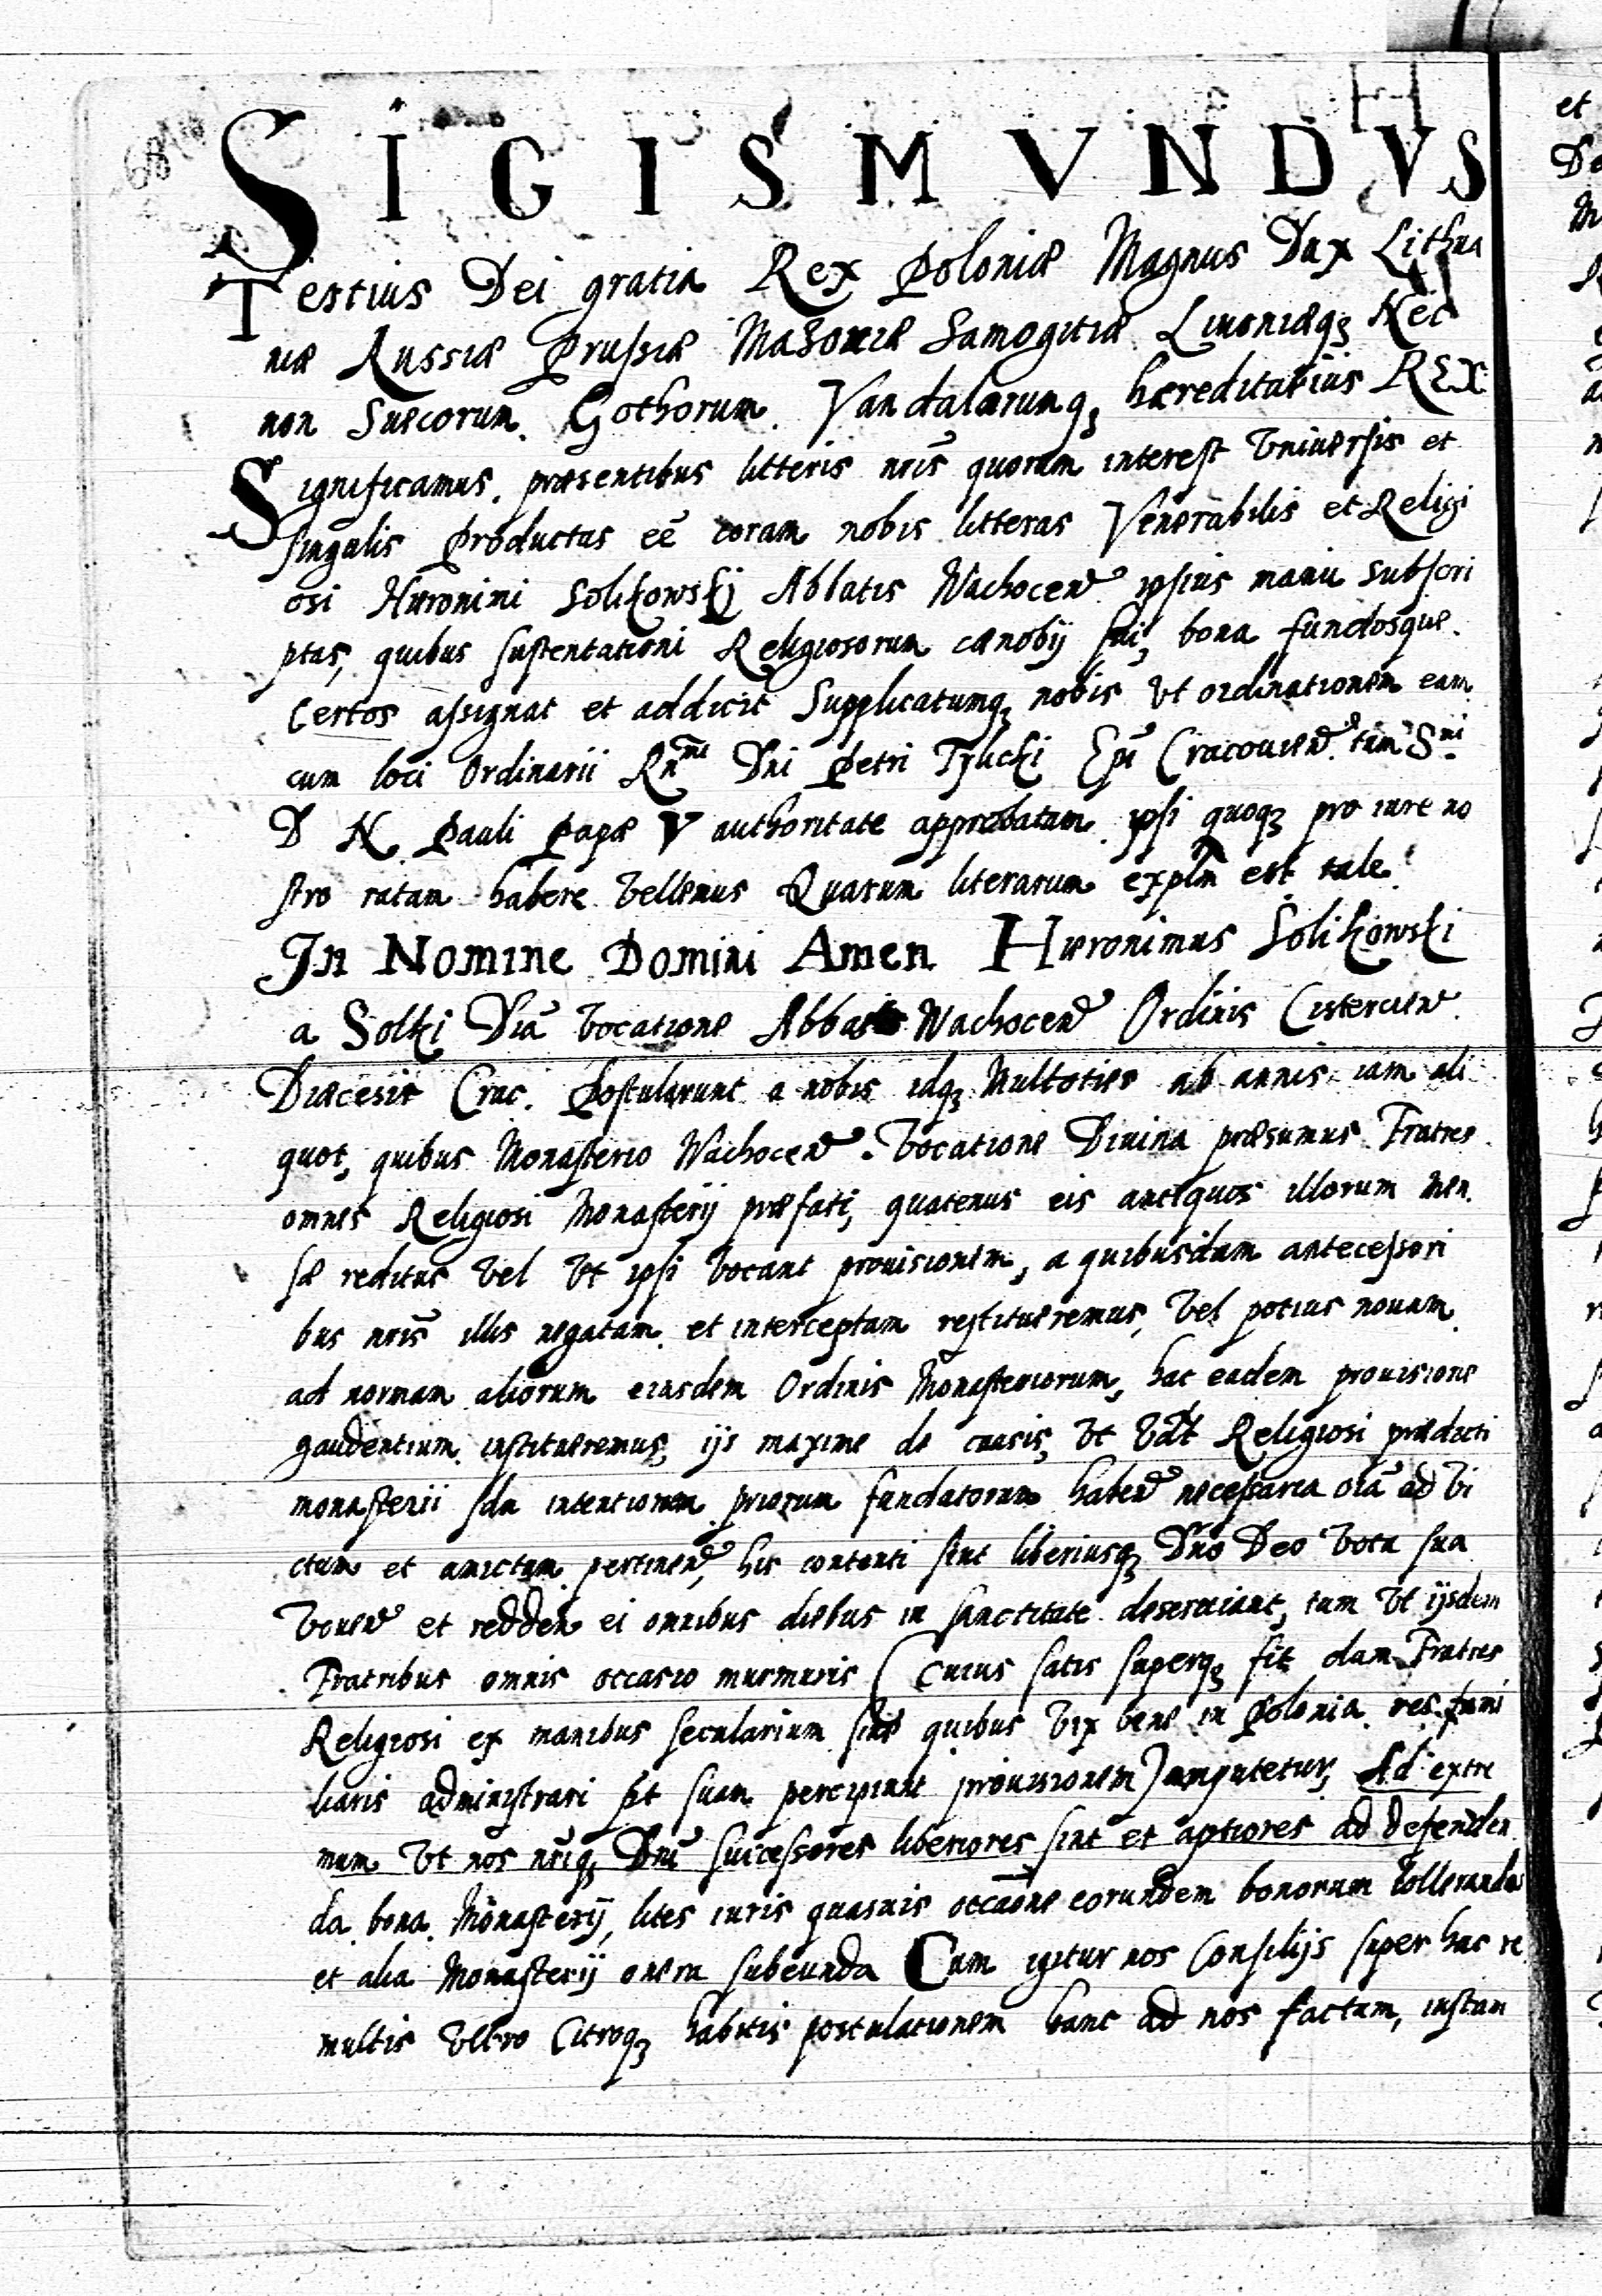 SIGISMVNDVS
Tertius Dei gratia Rex Poloniæ Magnus Dux Lithua
niæ Russiæ Prussiæ Mazoviæ Samogitiæ Liuoniæq3 Nec
non Suecorum Gothorum Vandalorumq3 hæreditarius REX
Significamus præsentibus litteris nris̃ quorum interest Vniuersis et
singulis productas eẽ coram nobis litteras Venerabilis et Religi
osi Hieronimi Solikowskij Abbatis Wachocen̄ ipsius manu subscri
ptas, quibus sustentationi Religiosorum cænobij sui, bona fundosque
Certos assignat et addicit Supplicatumq3 nobis Vt ordinationem eam
cum loci Ordinarii Rñmi Dñi Petri Tylicki Epĩ Cracouien̄ tum Smi
D N Pauli Papæ V authoritate approbatam ipsi quoq3 pro iure no
stro ratam habere Vellemus Quarum literarum explm̃ est tale
In Nomine Domini Amen Hieronimus Solikowski
a Solki Diã Vocatione Abbas Wachocen̄ Ordinis Cistercien̄
Diæcesis Crac. Postularunt a nobis idq3 Multoties ab annis iam ali
quot, quibus Monasterio Wachocen̄ Vocatione Diuina præsumus Fratres
omnes Religiosi Monasterij præfati, quatenus eis antiquos illorum Men
sæ reditus Vel Vt ipsi Vocant prouisionem, a quibusdam antecessori
bus nris̃ illis negatam et interceptam restitueremus, Vel potius nouam
ad normam aliorum eiusdem Ordinis Monasteriorum, hac eadem prouisione
gaudentium institueremus, ijs maxime de causis, Vt Vdt̃ Religiosi prædicti
monasterii sda intentionem priorum fundatorum haben̄ necessaria oĩa ad Vi
ctum et amictum pertinen̄, his contenti sint liberiusq3 Dño Deo Vota sua
Vouen̄ et redden̄ ei omnibus diebus in sanctitate deseruiant, tum Vt ijsdem
Fratribus omnis occasio murmuris (Cuius satis superq3 fit dum Fratres
Religiosi ex manibus secularium sine quibus Vix bene in Polonia res fami
liaris administrari pt̃ suam percipiunt prouisionem) amputetur, Ad extre
mum Vt nos nr̃iq3 Dnĩ successores liberiores sint et aptiores ad defenden
da bona Monasterij, lites iuris quasuis occaõne eorundem bonorum tollerandas
et alia Monasterij onera subeunda Cum igitur nos Consilijs super hac re
multis Vltro Citroq3 habitis postulationem hanc ad nos factam, instan